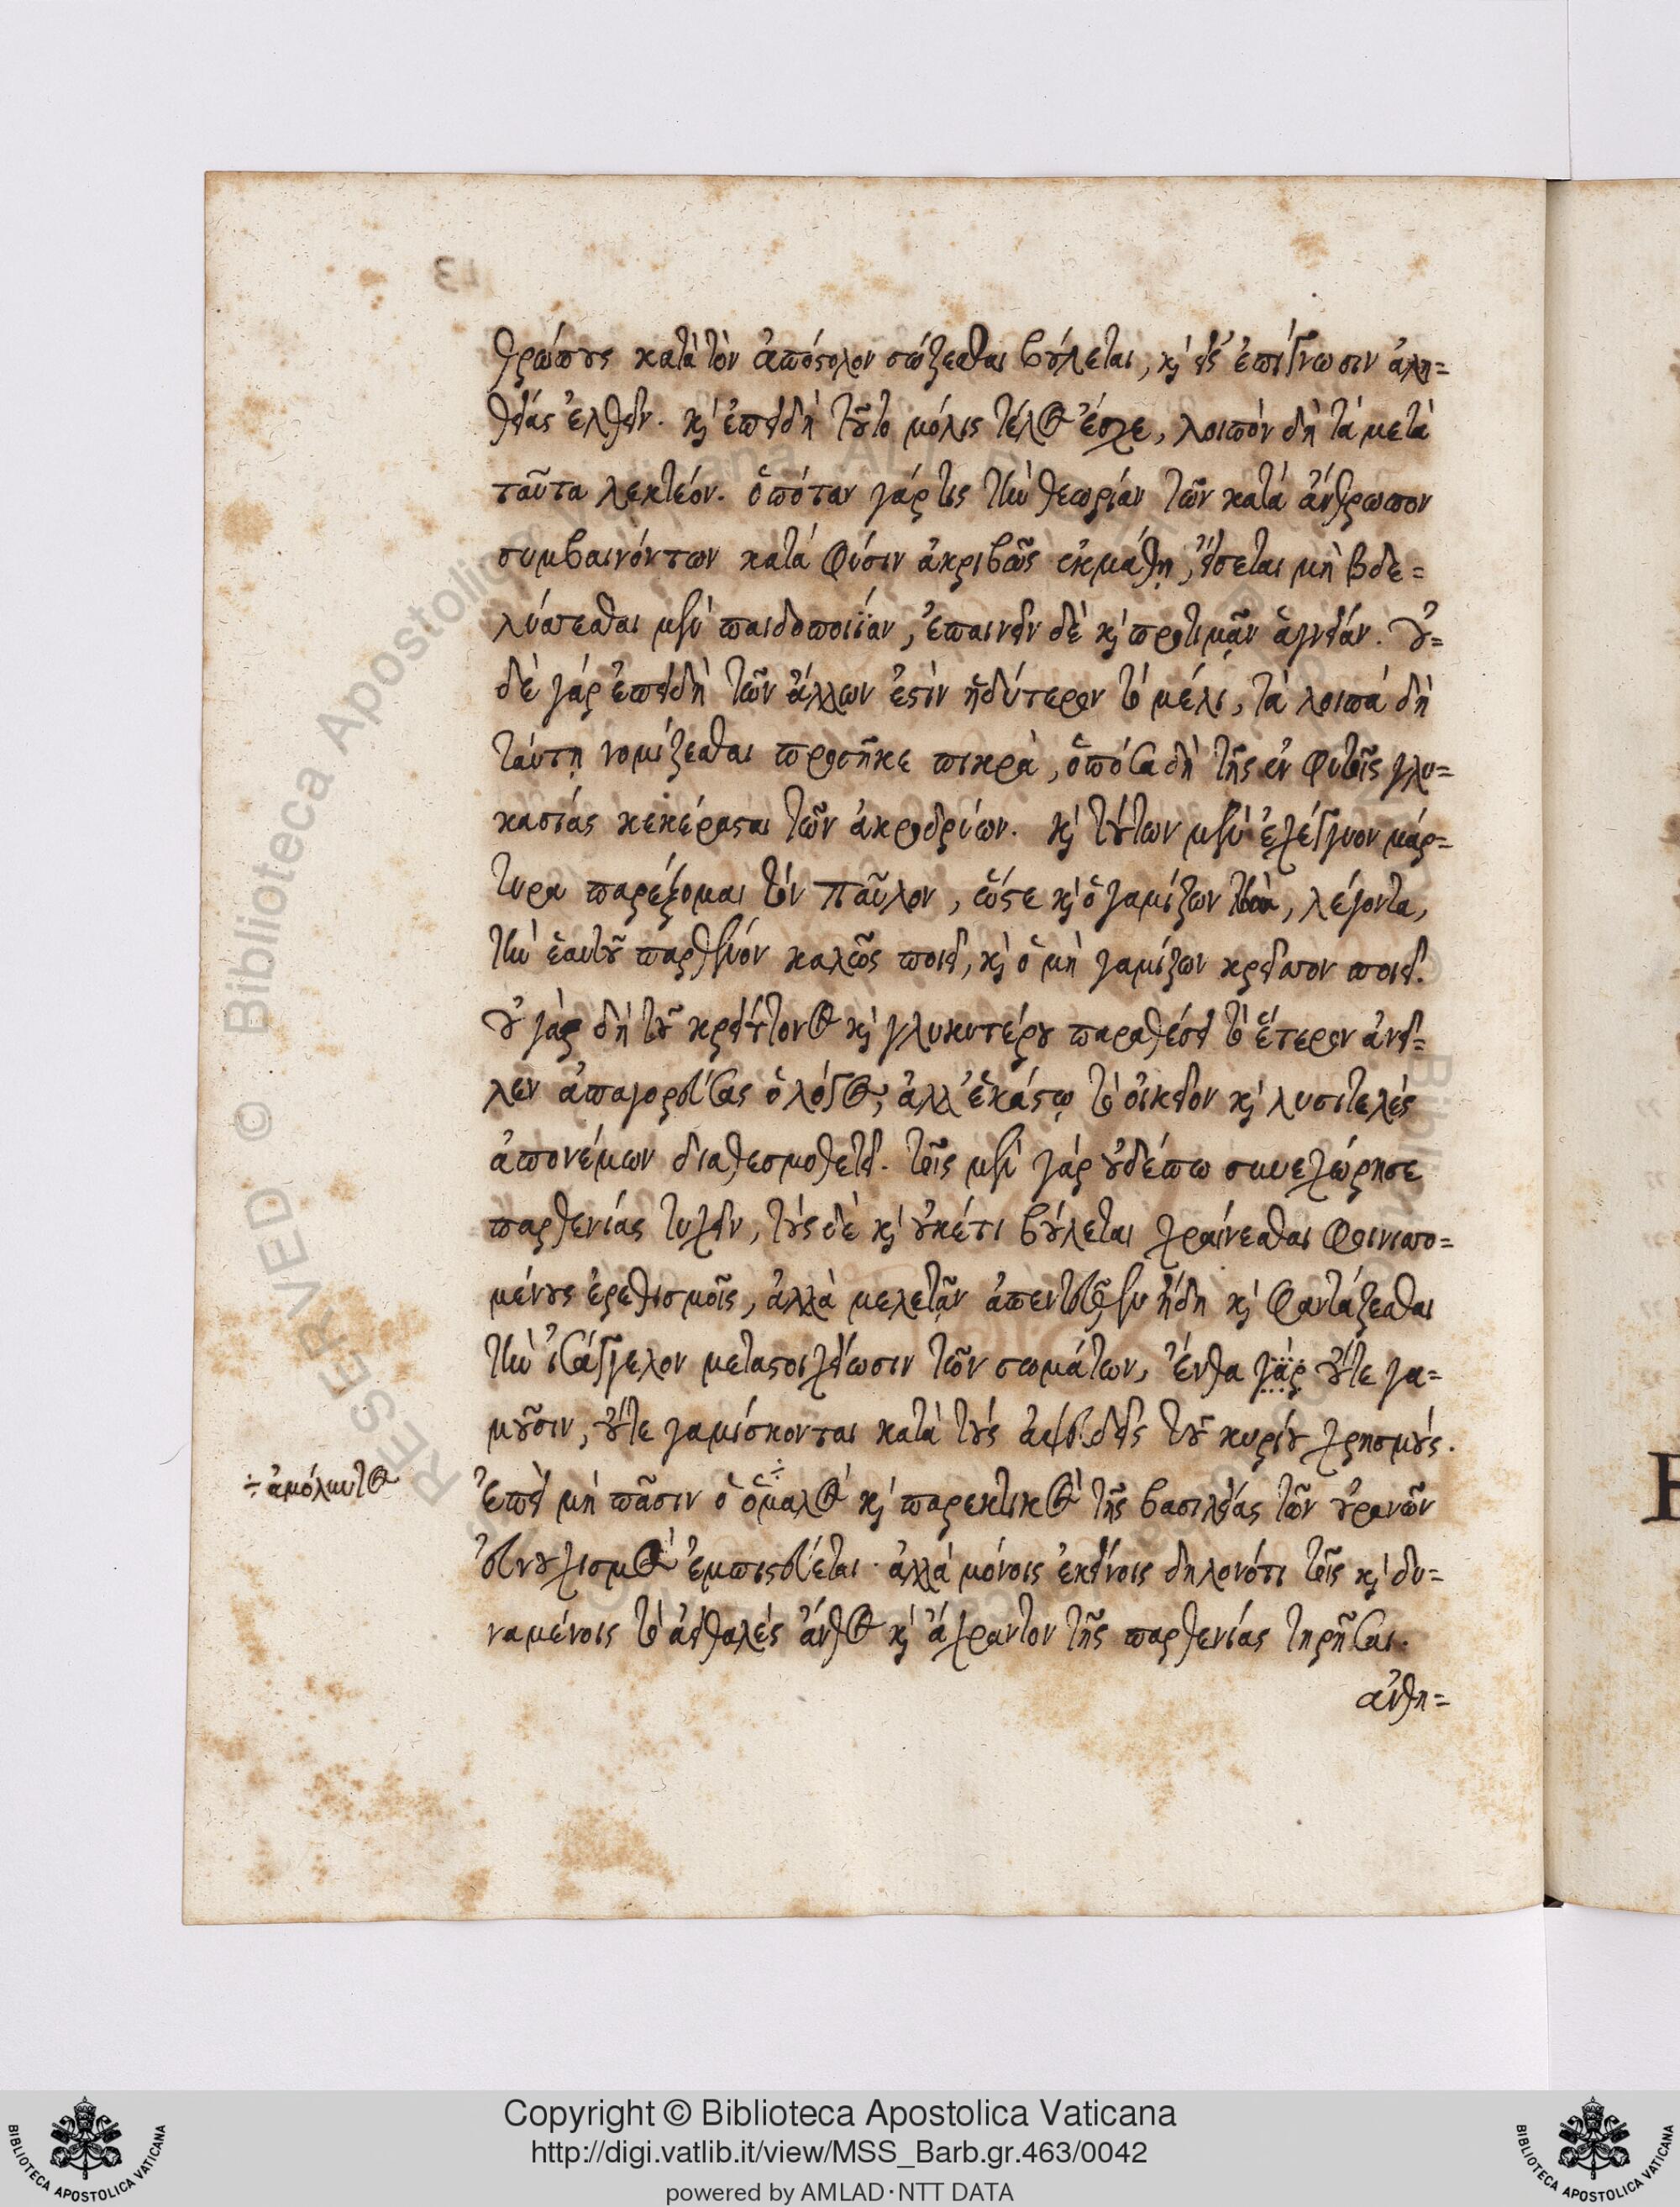 θρώπους κατὰ τὸν ἀπόστολον σώζεσθαι βούλεται, κὶ εἰς ἐπίγνωσιν ἀλη=
θείας ἐλθεῖν. κὶ ἐπειδὴ τοῦτο μόλις τέλος ἔσχε, λοιπὸν δὴ τὰ μετὰ
ταῦτα λεκτέον. ὁπόταν γάρ τις τὴν θεωρίαν τῶν κατὰ ἄνθρωπον
συμβαινόντων κατὰ φύσιν ἀκριβῶς ἐκμάθῃ, εἴσεται μὴ βδε=
λύσσεσθαι μὲν παιδοποιΐαν, ἐπαινεῖν δὲ κὶ προτιμᾷν ἁγνείαν. οὐ=
δὲ γάρ ἐπειδὴ τῶν ἄλλων ἐστὶν ἡδύτερον τὸ μέλι, τὰ λοιπὰ δὴ
ταύτῃ νομίζεσθαι προσῆκε πικρὰ, ὁπόσα δὴ τῆς ἐν φυτοῖς γλυ=
κασίας κεκέρασται τῶν ἀκροδρύων. κὶ τούτων μὲν ἐχέγγυον μάρ=
τυρα παρέξομαι τὸν παῦλον, ὥστε κὶ ὁ γαμίζων, λέγοντα,
τὴν ἑαυτοῦ παρθένον καλῶς ποιεῖ, κὶ ὁ μὴ γαμίζων κρεῖσσον ποιεῖ.
οὐ γὰρ δὴ τοῦ κρείττονος κὶ γλυκυτέρου παραθέσει τὸ ἕτερον ἀνεῖ=
λεν ἀπαγορεύσας ὁ λόγος, ἀλλ' ἑκάστῳ τὸ οἰκεῖον κὶ λυσιτελὲς
ἀπονέμων διαθεσμοθετεῖ. τοῖς μὲν γάρ οὐδέπω συνεχώρησε
παρθενίας τυχεῖν, τοὺς δὲ κὶ οὐκέτι βούλεται χραίνεσθαι φοινισσο=
μένους ἐρεθισμοῖς, ἀλλὰ μελετᾷν ἀπεντεῦθεν ἤδη κὶ φαντάζεσθαι
τὴν ἰσάγγελον μεταστοιχείωσιν τῶν σωμάτων, ἔνθα γὰρ οὔτε γα=
μοῦσιν, οὔτε γαμίσκονται κατὰ τοὺς ἀψευδεῖς τοῦ κυρίου χρησμούς.
÷ ἀμόλυντος
ἐπεὶ μὴ πᾶσιν ὁ ὁμαλὸς κὶ παρεκτικὸς τῆς βασιλείας τῶν οὐρανῶν
εὐνουχισμὸς ἐμπιστεύεται. ἀλλὰ μόνοις ἐκείνοις δηλονότι τοῖς κὶ δυ=
ναμένοις τὸ ἀειθαλὲς ἄνθος κὶ ἄχραντον τῆς παρθενίας τηρῆσαι.
ἀνθη=
Copyright © Biblioteca Apostolica Vaticana
http://digi.vatlib.it/view/MSS_Barb.gr.463/0042
powered by AMLAD·NTT DATA
BIBLIOTECA APOSTOLICA VATICANA
BIBLIOTECA APOSTOLICA VATICANA